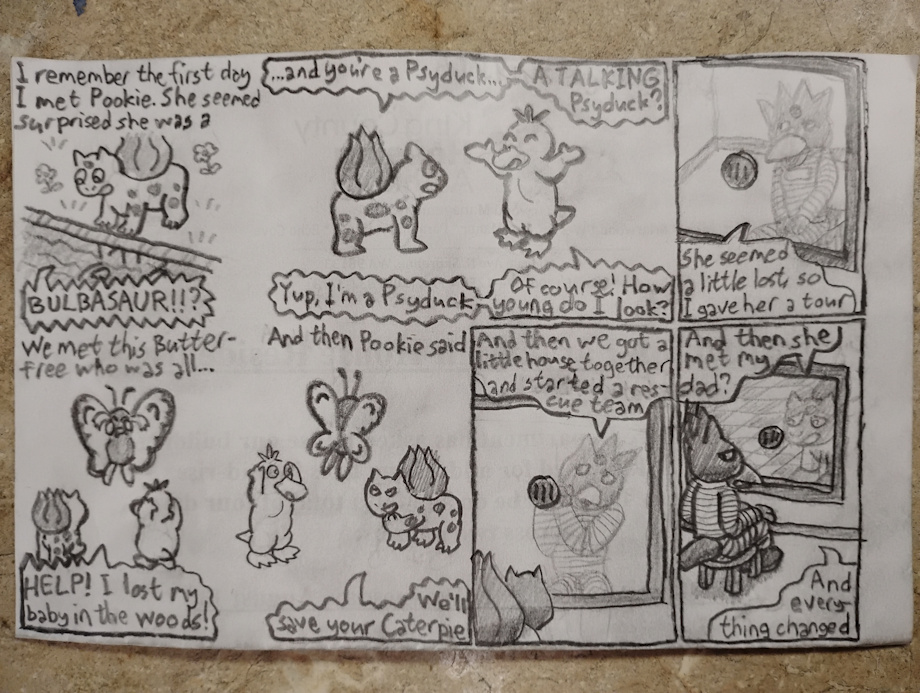 I remember the first day
I met Pookie. She seemed
surprised she was a
BULBASAUR!!?
...and you're a Psyduck...
A TALKING
Psyduck?
Yup, I'm a Psyduck
Of course! How
young do I look?
She seemed
a little lost, so
I gave her a tour
We met this Butter-
free who was all...
HELP! I lost my
baby in the woods!
And then Pookie said
We'll
save your Caterpie
And then we got a
little house together
and started a res-
cue team
And then she
met my
dad?
And
every-
thing changed